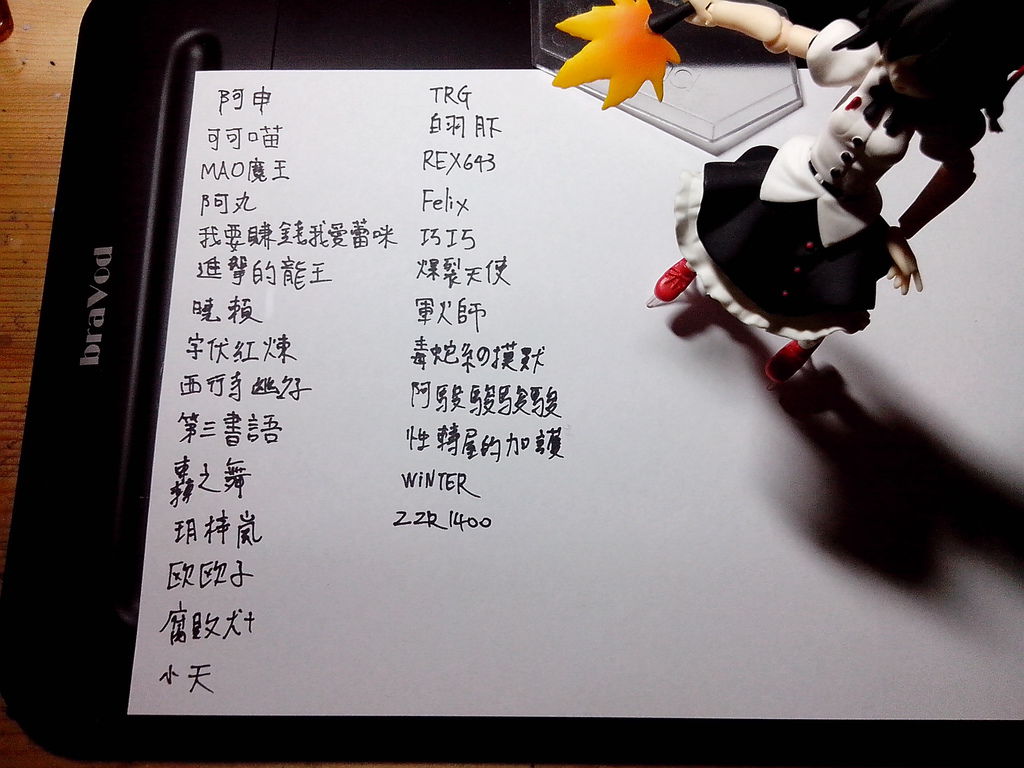 braVod
阿申
可可喵
MAO魔王
阿丸
我要賺錢我愛蕾咪
進擊的龍王
曉賴
宇伏紅煉
西行寺幽子
第三書語
轉之舞
玥梓嵐
欧欧子
腐敗犬十
小天
TRG
白羽
REX643
Felix
巧巧
爆裂天使
軍火師
毒蛇系の摸默
阿駿駿駿駿
性轉屋的加護
WiNTER
ZZR1400